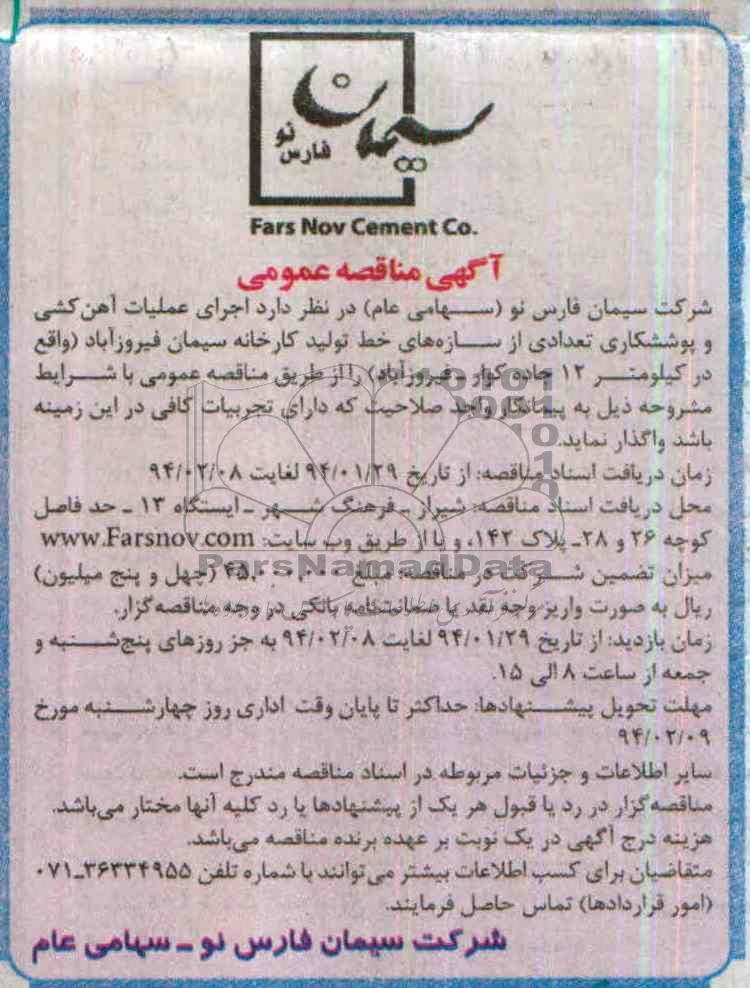 سیمان
فارس نو
Fars Nov Cement Co.
آگهی مناقصه عمومی
شرکت سیمان فارس نو (سهامی عام) در نظر دارد اجرای عملیات آهن‌کشی
و پوششکاری تعدادی از سازه‌های خط تولید کارخانه سیمان فیروزآباد (واقع
در کیلومتر ۱۲ جاده کوار - فیروزآباد) را از طریق مناقصه عمومی با شرایط
مشروحه ذیل به پیمانکار واجد صلاحیت که دارای تجربیات کافی در این زمینه
باشد واگذار نماید.
زمان دریافت اسناد مناقصه: از تاریخ ۹۴/۰۱/۲۹ لغایت ۹۴/۰۲/۰۸
محل دریافت اسناد مناقصه: شیراز ـ فرهنگ شهر ـ ایستگاه ۱۳ ـ حد فاصل
کوچه ۲۶ و ۲۸ـ پلاک ۱۴۲، و یا از طریق وب سایت: www.Farsnov.com
میزان تضمین شرکت در مناقصه: مبلغ ۴۵،۰۰۰،۰۰۰ (چهل و پنج میلیون)
ریال به صورت واریز وجه نقد یا ضمانتنامه بانکی در وجه مناقصه‌گزار.
زمان بازدید: از تاریخ ۹۴/۰۱/۲۹ لغایت ۹۴/۰۲/۰۸ به جز روزهای پنج‌شنبه و
جمعه از ساعت ۸ الی ۱۵.
مهلت تحویل پیشنهادها: حداکثر تا پایان وقت اداری روز چهارشنبه مورخ
۹۴/۰۲/۰۹
سایر اطلاعات و جزئیات مربوطه در اسناد مناقصه مندرج است.
مناقصه‌گزار در رد یا قبول هر یک از پیشنهادها یا رد کلیه آنها مختار می‌باشد.
هزینه درج آگهی در یک نوبت بر عهده برنده مناقصه می‌باشد.
متقاضیان برای کسب اطلاعات بیشتر می‌توانند با شماره تلفن ۳۶۳۳۴۹۵۵ـ۰۷۱
(امور قراردادها) تماس حاصل فرمایند.
شرکت سیمان فارس نو ـ سهامی عام
ParsNamadData